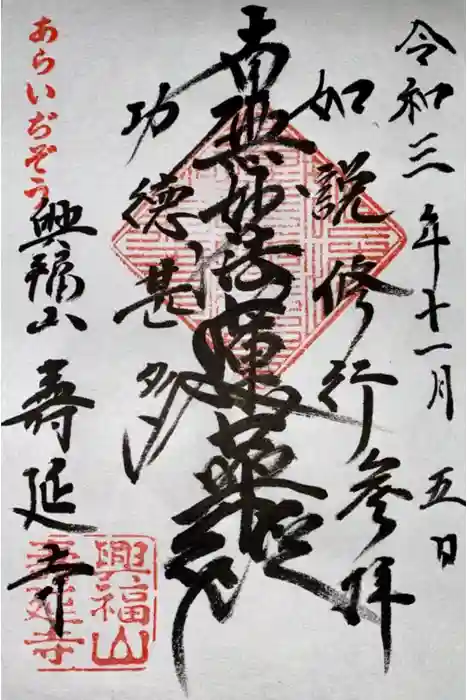 令和三年十一月五日
如説修行参拝
南無妙法蓮華経
功徳甚多
あらいぢぞう
興福山
寿延寺
興福山
寿延寺